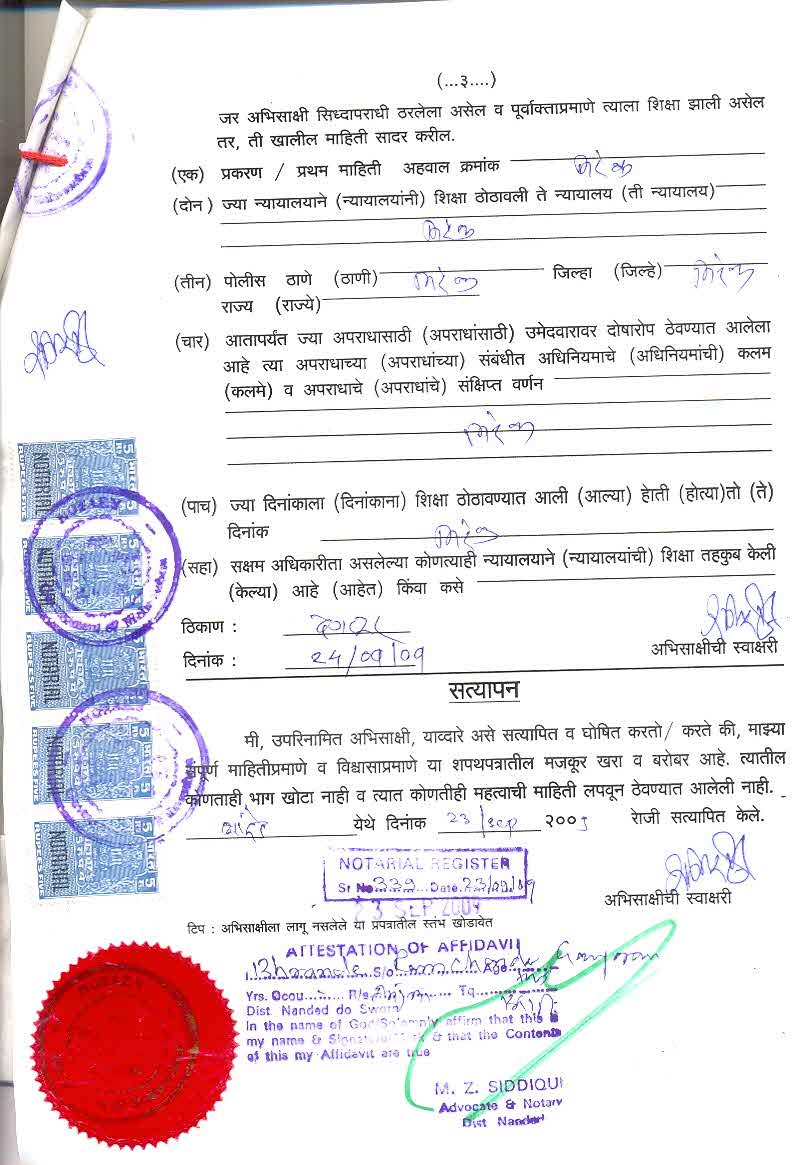 (...३....)
जर अभिसाक्षी सिध्दापराधी ठरलेला असेल व पूर्वाक्ताप्रमाणे त्याला शिक्षा झाली असेल
तर, ती खालील माहिती सादर करील.
(एक) प्रकरण / प्रथम माहिती अहवाल क्रमांक निरंक
(दोन ) ज्या न्यायालयाने (न्यायालयांनी) शिक्षा ठोठावली ते न्यायालय (ती न्यायालय)
निरंक
(तीन) पोलीस ठाणे (ठाणी) निरंक जिल्हा (जिल्हे) निरंक
राज्य (राज्ये)
(चार) आतापर्यंत ज्या अपराधासाठी (अपराधांसाठी) उमेदवारावर दोषारोप ठेवण्यात आलेला
आहे त्या अपराधाच्या (अपराधांच्या) संबंधीत अधिनियमाचे (अधिनियमांची) कलम
(कलमे) व अपराधाचे (अपराधांचे) संक्षिप्त वर्णन
निरंक
(पाच) ज्या दिनांकाला (दिनांकाना) शिक्षा ठोठावण्यात आली (आल्या) हेाती (होत्या)तो (ते)
दिनांक निरंक
(सहा) सक्षम अधिकारीता असलेल्या कोणत्याही न्यायालयाने (न्यायालयांची) शिक्षा तहकुब केली
(केल्या) आहे (आहेत) किंवा कसे
ठिकाण :
दिनांक : 24/09/09
अभिसाक्षीची स्वाक्षरी
सत्यापन
मी, उपरिनामित अभिसाक्षी, याव्दारे असे सत्यापित व घोषित करतो/ करते की, माझ्या
संपूर्ण माहितीप्रमाणे व विश्वासाप्रमाणे या शपथपत्रातील मजकूर खरा व बरोबर आहे. त्यातील
कोणताही भाग खोटा नाही व त्यात कोणतीही महत्वाची माहिती लपवून ठेवण्यात आलेली नाही.
नांदेड येथे दिनांक 23/sep २००९ रोजी सत्यापित केले.
NOTARIAL REGISTER
Sr No.339 Date.23/09/09
23 SEP 2009
अभिसाक्षीची स्वाक्षरी
टिप : अभिसाक्षीला लागू नसलेले या प्रपत्रातील स्तंभ खोडावेत
ATTESTATION OF AFFIDAVIT
I S/o Age
Yrs. Occu R/o Tq
Dist Nanded do Sworn
In the name of God/Solemnly affirm that this is
my name & Signature/Mark & that the Contents
of this my Affidavit are true
M. Z. SIDDIQUI
Advocate & Notary
Dist Nanded
5 भारत
NOTARIAL
RUPEES FIVE
NOTARIAL
NOTARIAL
RUPEES FIVE
5 भारत
NOTARIAL
RUPEES FIVE
5 भारत
NOTARIAL
RUPEES FIVE
NOTARY